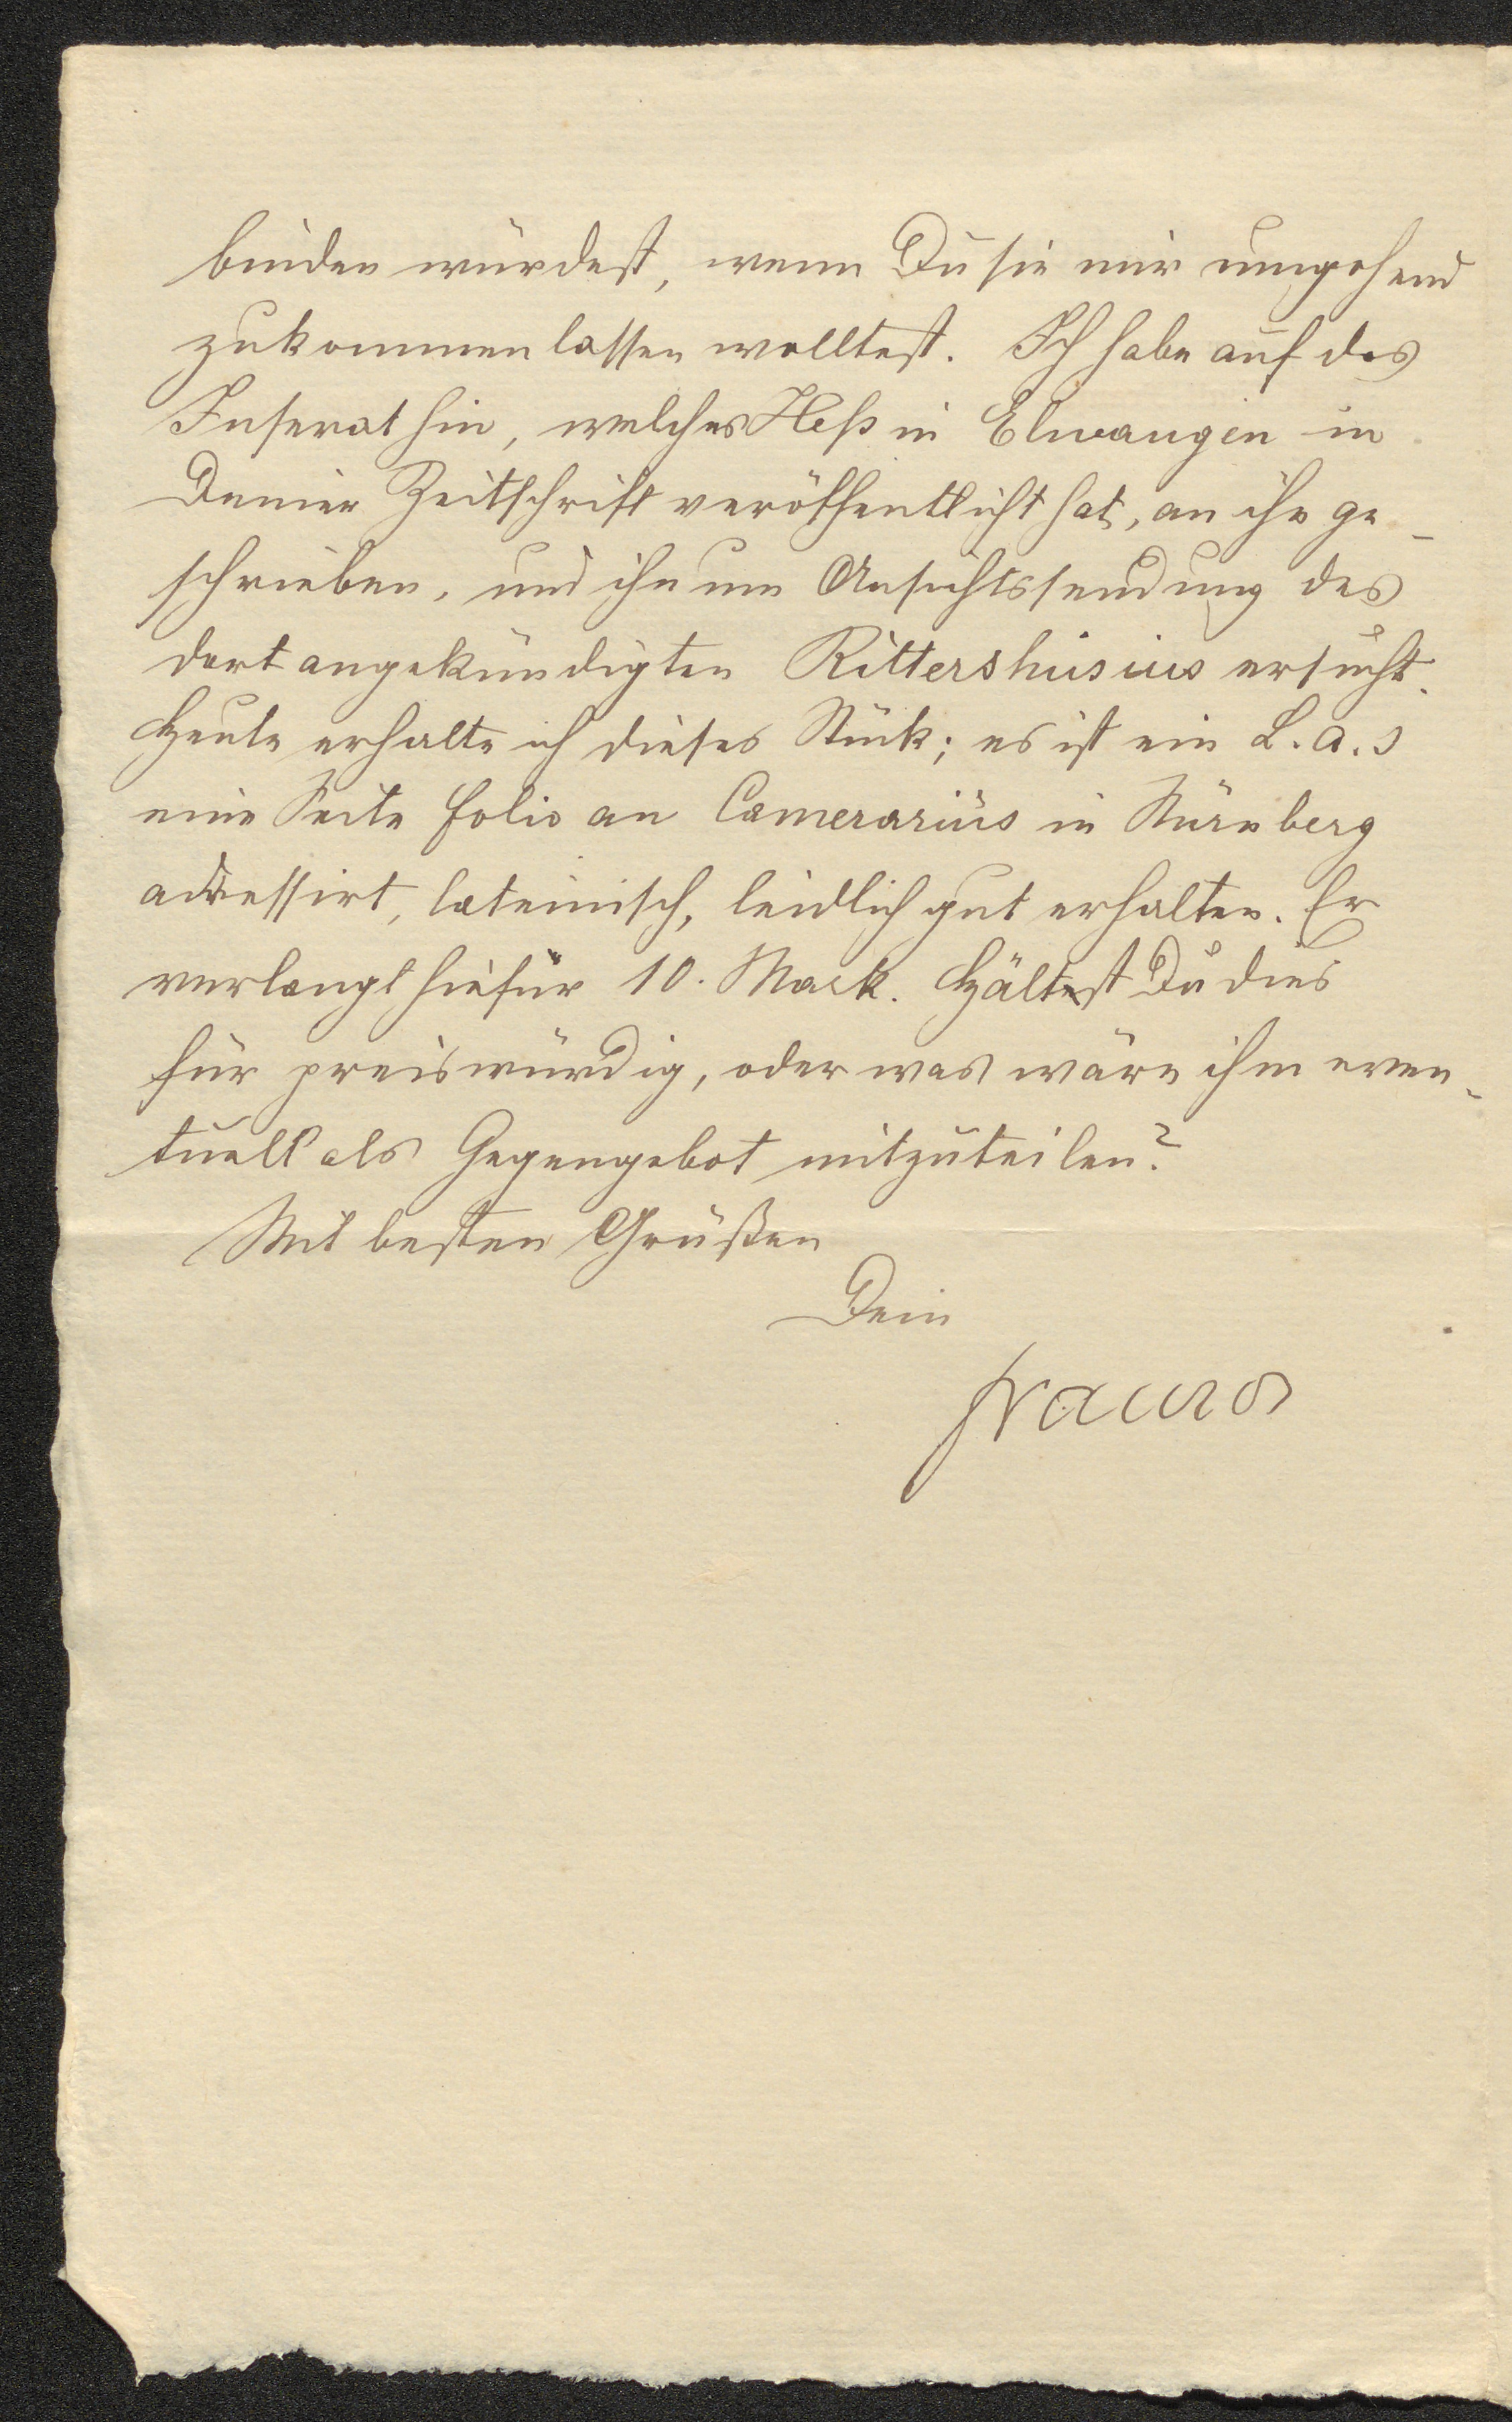 binden würdest, wenn Du sie mir umgehend
zukommen lassen wolltest. Ich habe auf das
Inserat hin, welches Heß in Elwangen in
Deiner Zeitschrift veröffentlicht hat, an ihn ge-
schrieben, und ihn um Ansichtssendung des
dort angekündigten Rittershusius ersucht.
Heute erhalte ich dieses Stück; es ist ein L. a. s
eine Seite folio an Camerarius in Nürnberg
adressirt, lateinisch, leidlich gut erhalten. Er
verlangt hiefür 10. Mark. Hältst Du dies
für preiswürdig, oder was wäre ihm even-
tuell als Gegengebot mitzuteilen?
Mit besten Grüßen
Dein